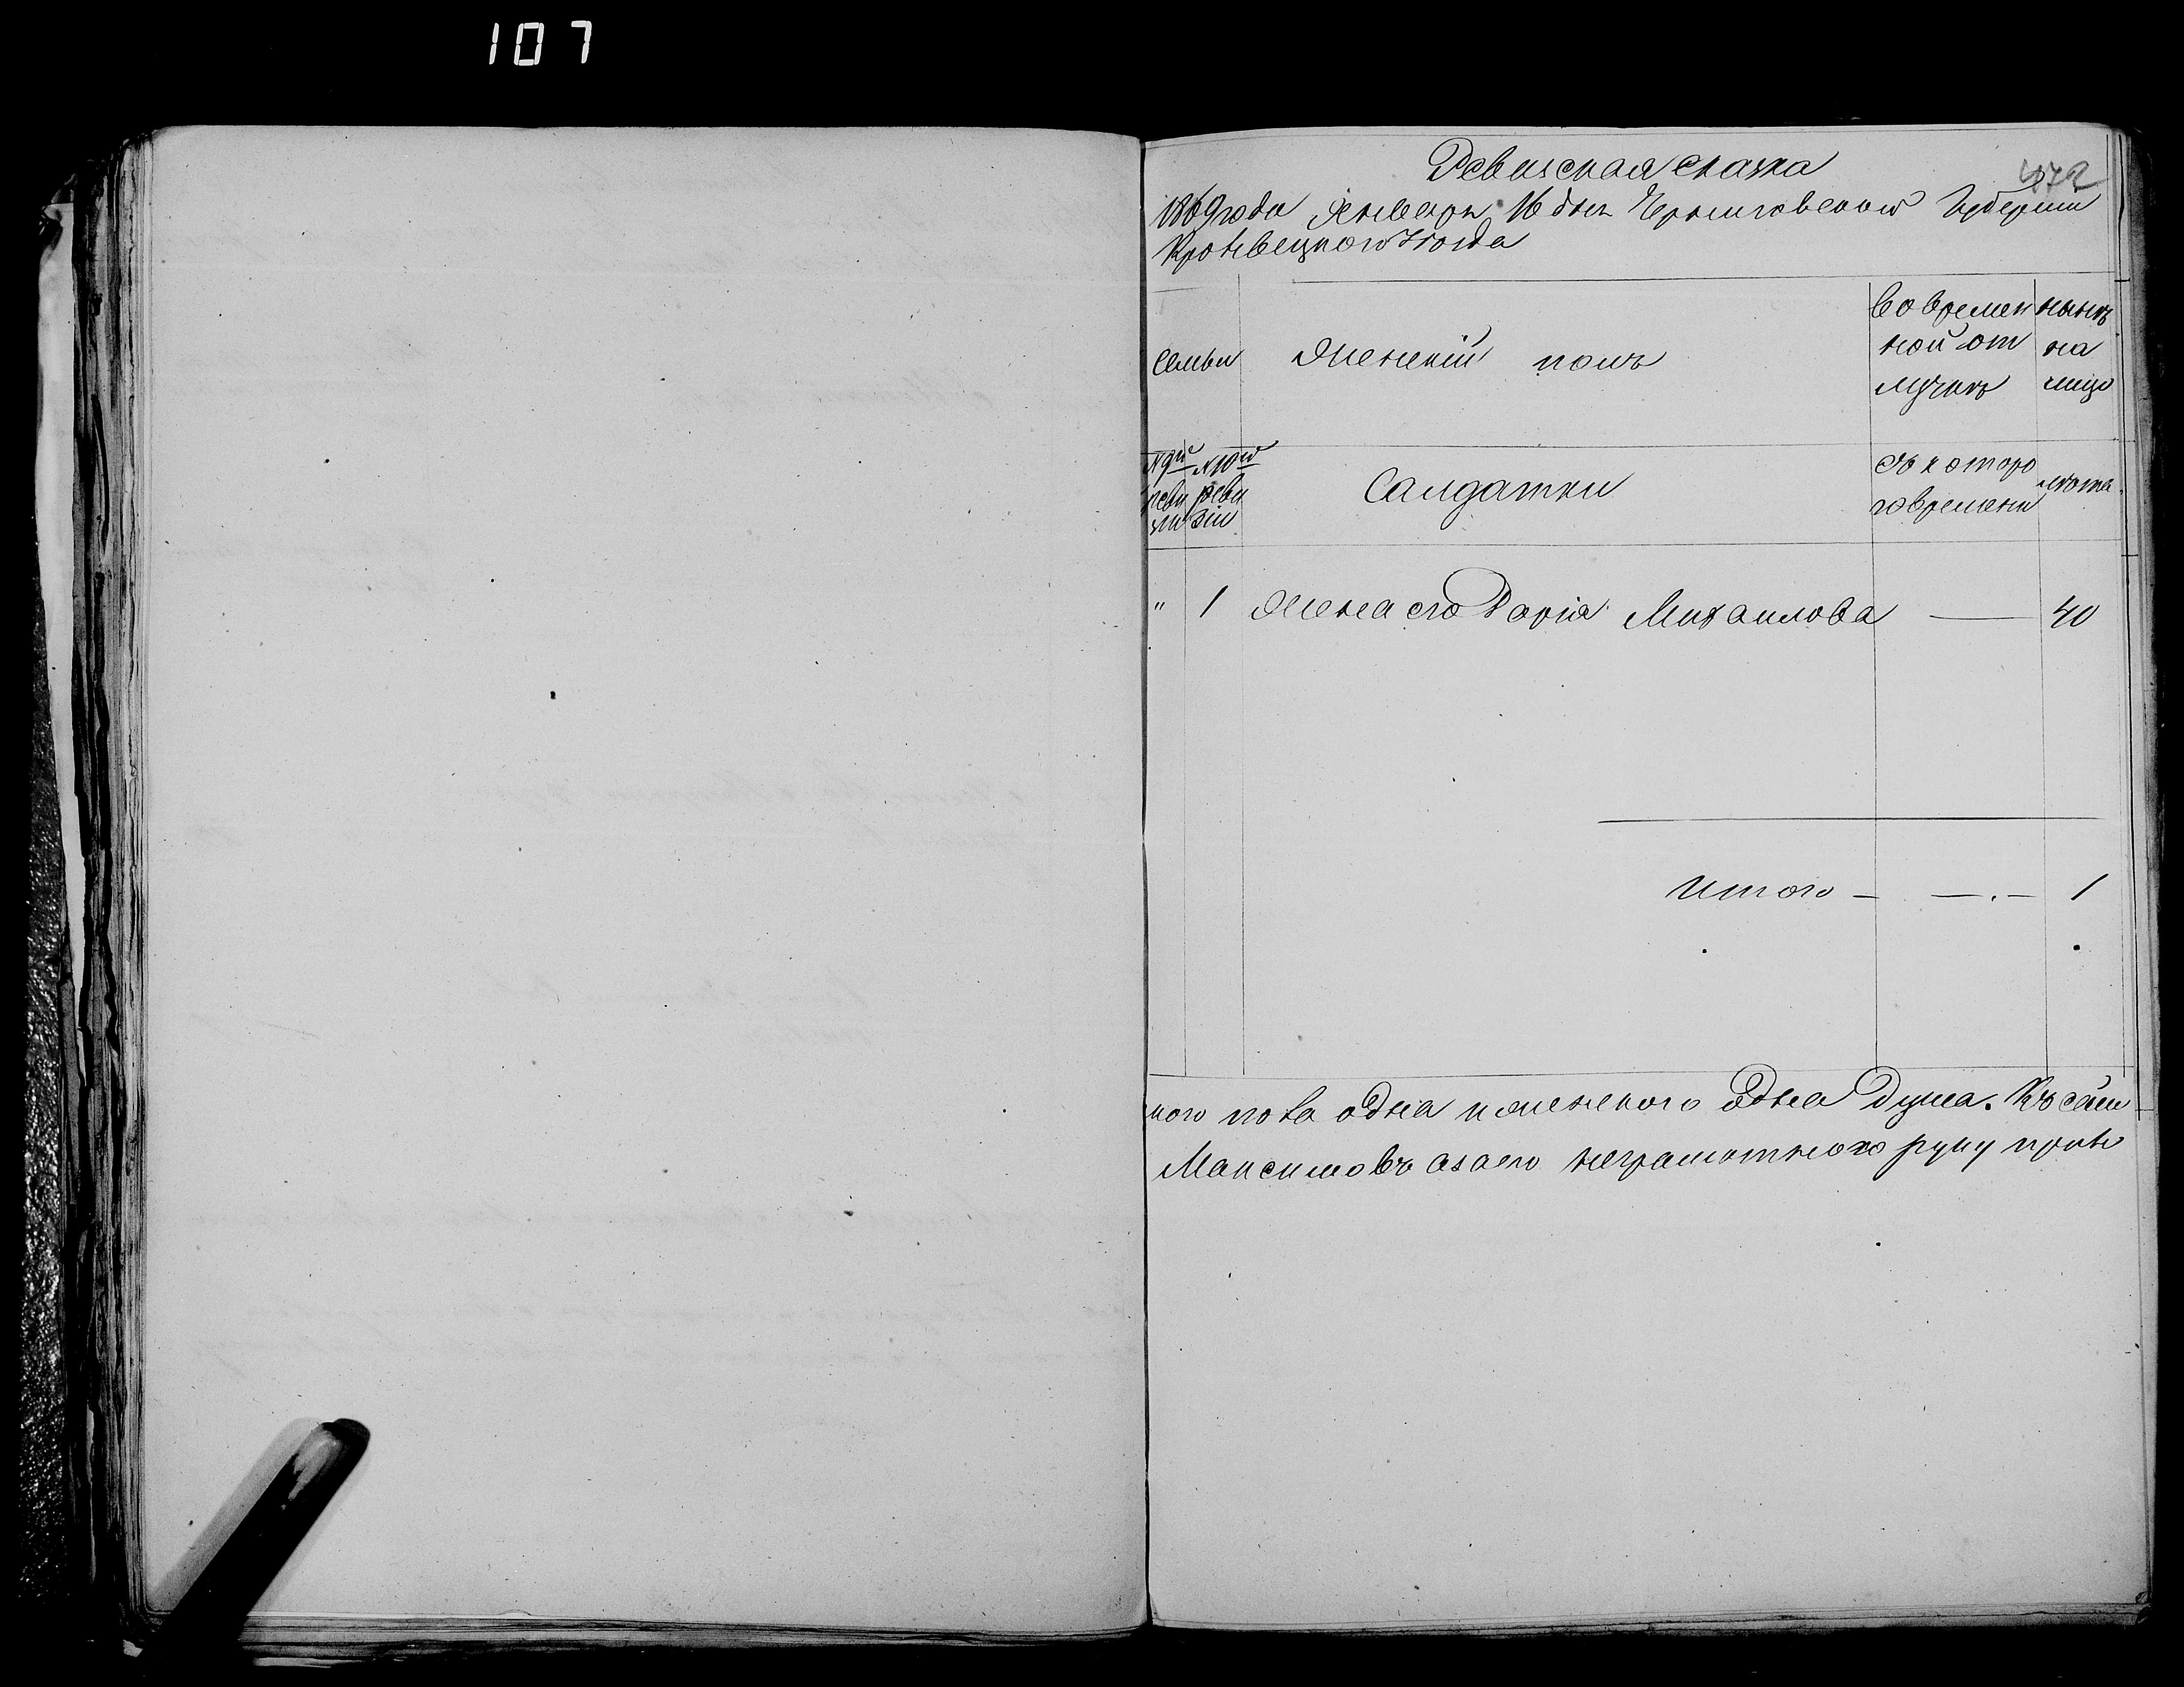 107
Ревизская сказка
472
1869 года Января 16 дня Черниговской Губернии
Кролевецкого Уезда
Семьи
Женский полъ
Во времен
ной от
лучке
ныне
на
лицо
№ 9й
реви
зии
№ 10й
реви
зии
Салдатки
Съ которо
го времени
лета
" 1 Жена его Дарія Михаилова — 40
Итого — — . — 1
кого пола одна и женского одна душа. Къ сей
Максимовъ а за его неграмотного руку прило